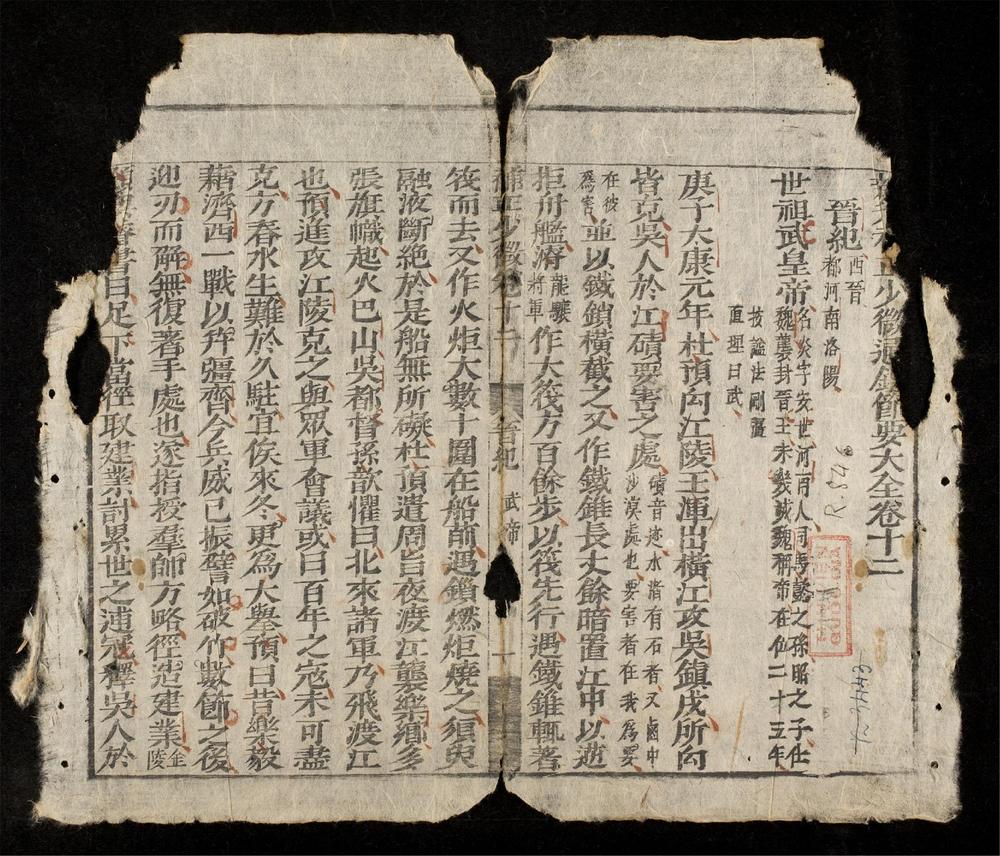 少微通鑑節要大全卷十二
晉紀 西晉都河南洛陽
世祖武皇帝 名炎字安世河內人司馬懿之孫昭之子仕魏襲封晉王未幾滅魏稱帝在位二十五年
按諡法剛彊直理曰武
庚子大康元年杜預向江陵王渾出橫江攻吳鎮戍所向
皆克吳人於江磧要害之處 磧音迹水渚有石者又鹵中沙漠處也要害者在我為要
在彼為害 並以鐵鎖橫截之又作鐵錐長丈餘暗置江中以逆
拒舟艦濬 龍驤將軍 作大筏方百餘步以筏先行遇鐵錐輒著
晉紀 武帝 一
筏而去又作火炬大數十圍在船前遇鎖燃炬燒之須臾
融液斷絕於是船無所礙杜預遣周旨夜渡江襲樂鄉多
張旗幟起火巴山吳都督孫歆懼曰北來諸軍乃飛渡江
也預進攻江陵克之與眾軍會議或曰百年之寇未可盡
克方春水生難於久駐宜俟來冬更為大舉預曰昔樂毅
藉濟西一戰以并彊齊今兵威已振譬如破竹數節之後
迎刃而解無復著手處也遂指授羣帥方略徑造建業 金陵
書曰足下當徑取建業討累世之逋寇釋吳人於
R.546